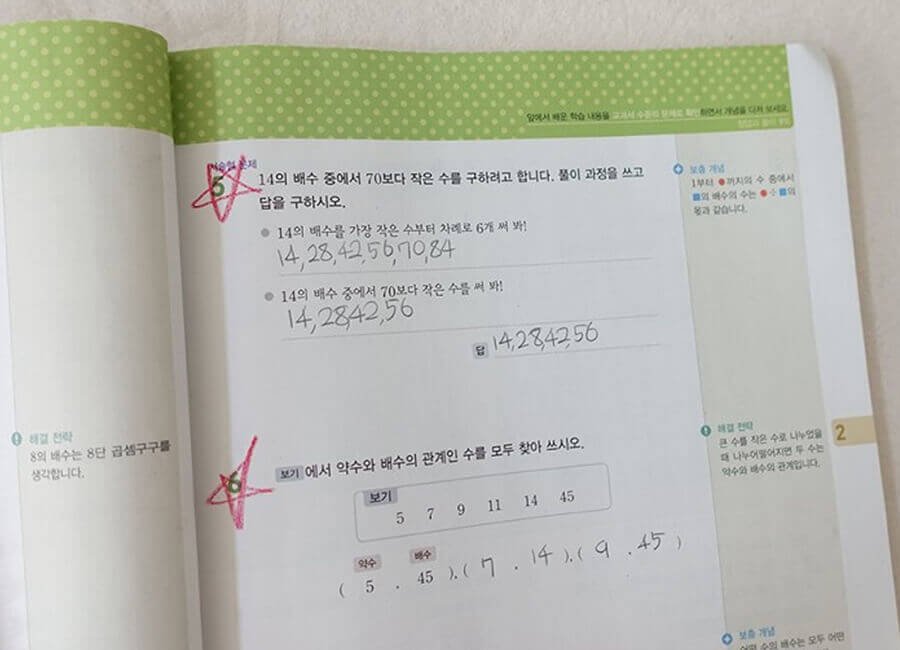 앞에서 배운 학습 내용을 교과서 수준의 문제로 확인하면서 개념을 다져 보세요.
서술형 문제
5 14의 배수 중에서 70보다 작은 수를 구하려고 합니다. 풀이 과정을 쓰고
답을 구하시오.
14의 배수를 가장 작은 수부터 차례로 6개 써 봐!
14,28,42,56,70,84
14의 배수 중에서 70보다 작은 수를 써 봐!
14,28,42,56
답 14,28,42,56
보충 개념
1부터 ●까지의 수 중에서
■의 배수의 수는 ●÷■의
몫과 같습니다.
해결 전략
8의 배수는 8단 곱셈구구를
생각합니다.
6 보기 에서 약수와 배수의 관계인 수를 모두 찾아 쓰시오.
보기
5 7 9 11 14 45
약수 배수
( 5 , 45 ), ( 7 , 14 ), ( 9 , 45 )
해결 전략
큰 수를 작은 수로 나누었을
때 나누어떨어지면 두 수는
약수와 배수의 관계입니다.
2
보충 개념
어떤 수의 배수는 모두 어떤